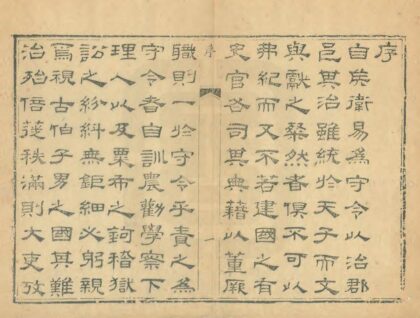 序
自矦衛易為守令以治郡
邑其治雖統於天子而文
與獻之粲然者俱不可以
弗紀而又不若建國之有
史官各司其典籍以董厥
序 一
職則一於守令乎責之為
守令者自訓農勸學察下
理人以及粟布之鉤稽獄
訟之紛糾無鉅細必躬親
焉視古伯子男之國其難
治殆倍蓰秩滿則大吏攷